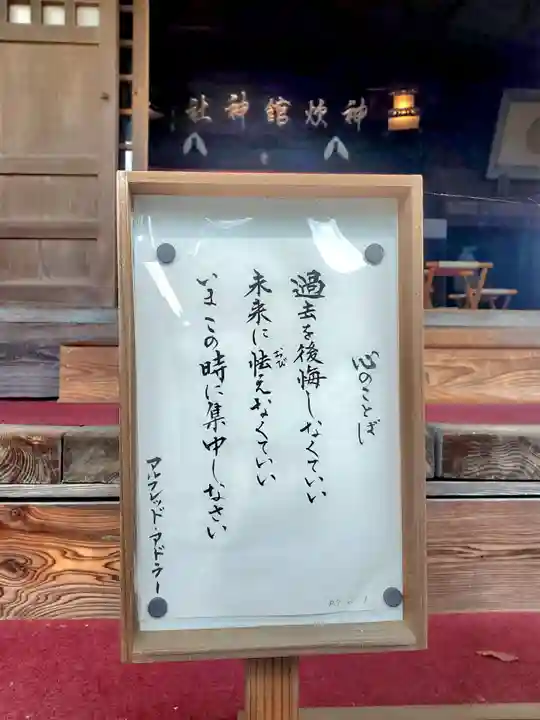 神炊館神社
心のことば
過去を後悔しなくていい
未来に怯えなくていい
おび
いま この時に集中しなさい
アルフレッド・アドラー